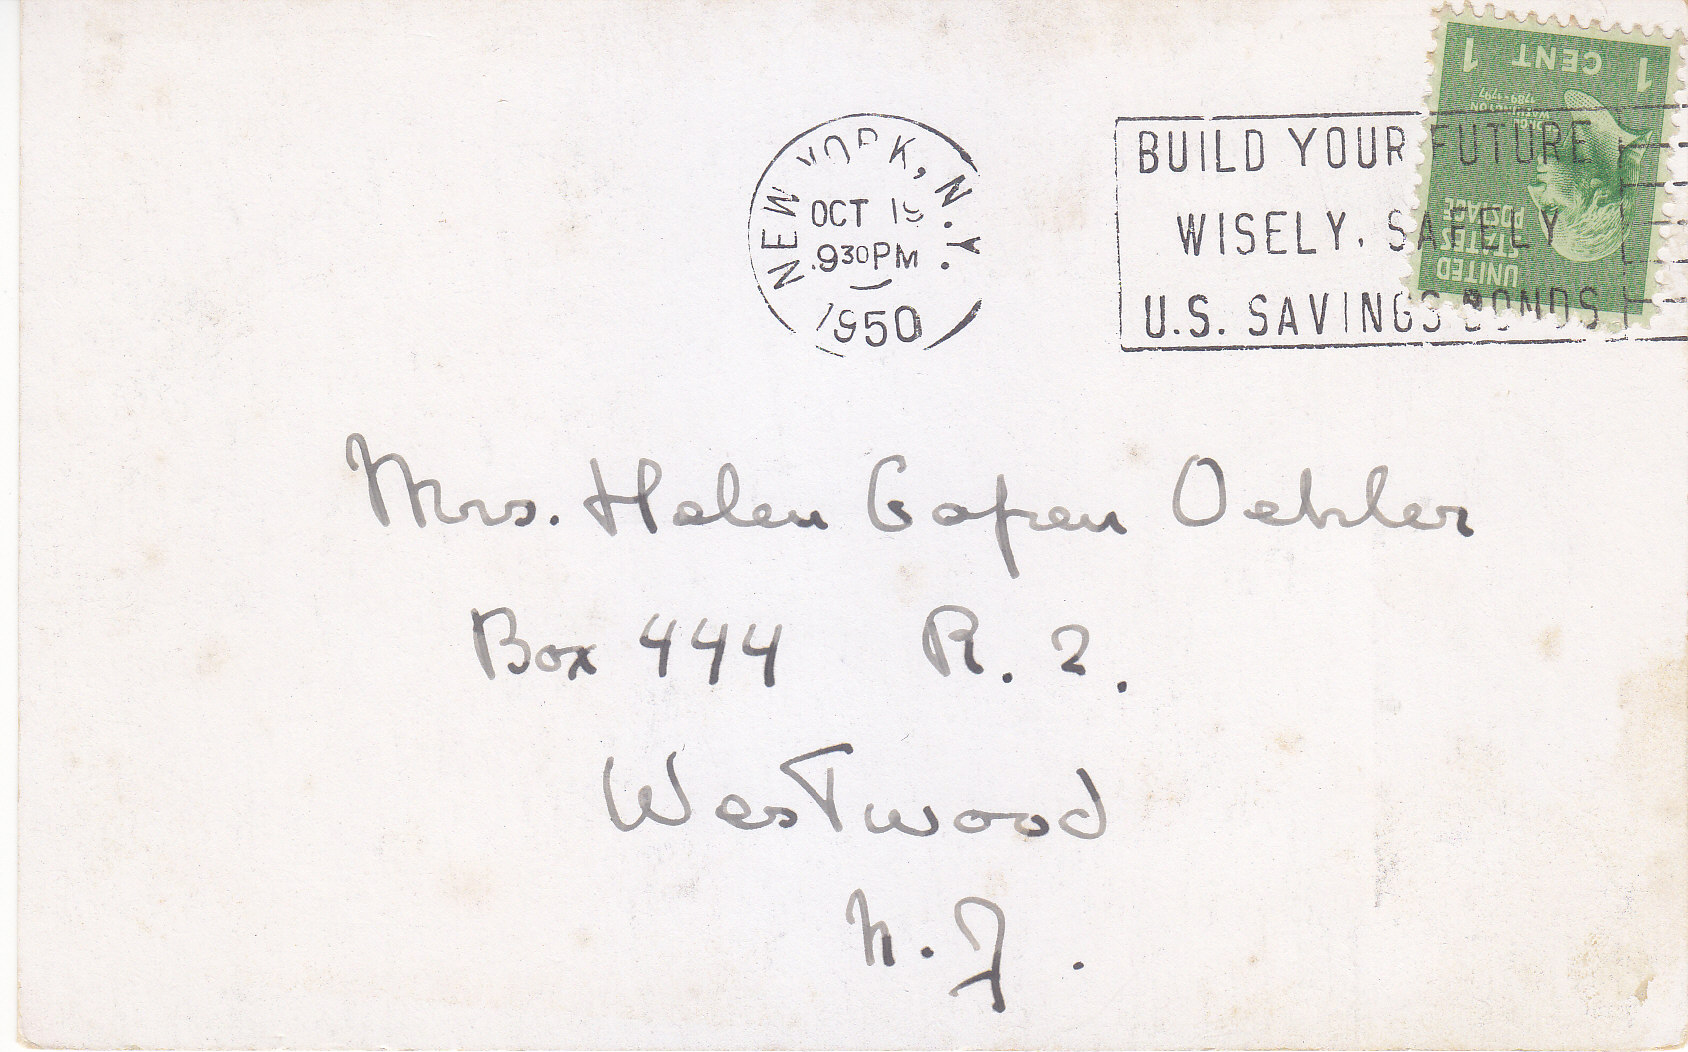 1 CENT 1
GEORGE WASHINGTON
1789-1797
UNITED
STATES
POSTAGE
NEW YORK, N.Y.
OCT 19
930PM
1950
BUILD YOUR FUTURE
WISELY, SAFELY
U.S. SAVINGS BONDS
Mrs. Helen Gapen Oehler
Box 444 R. 2.
Westwood
N.J.